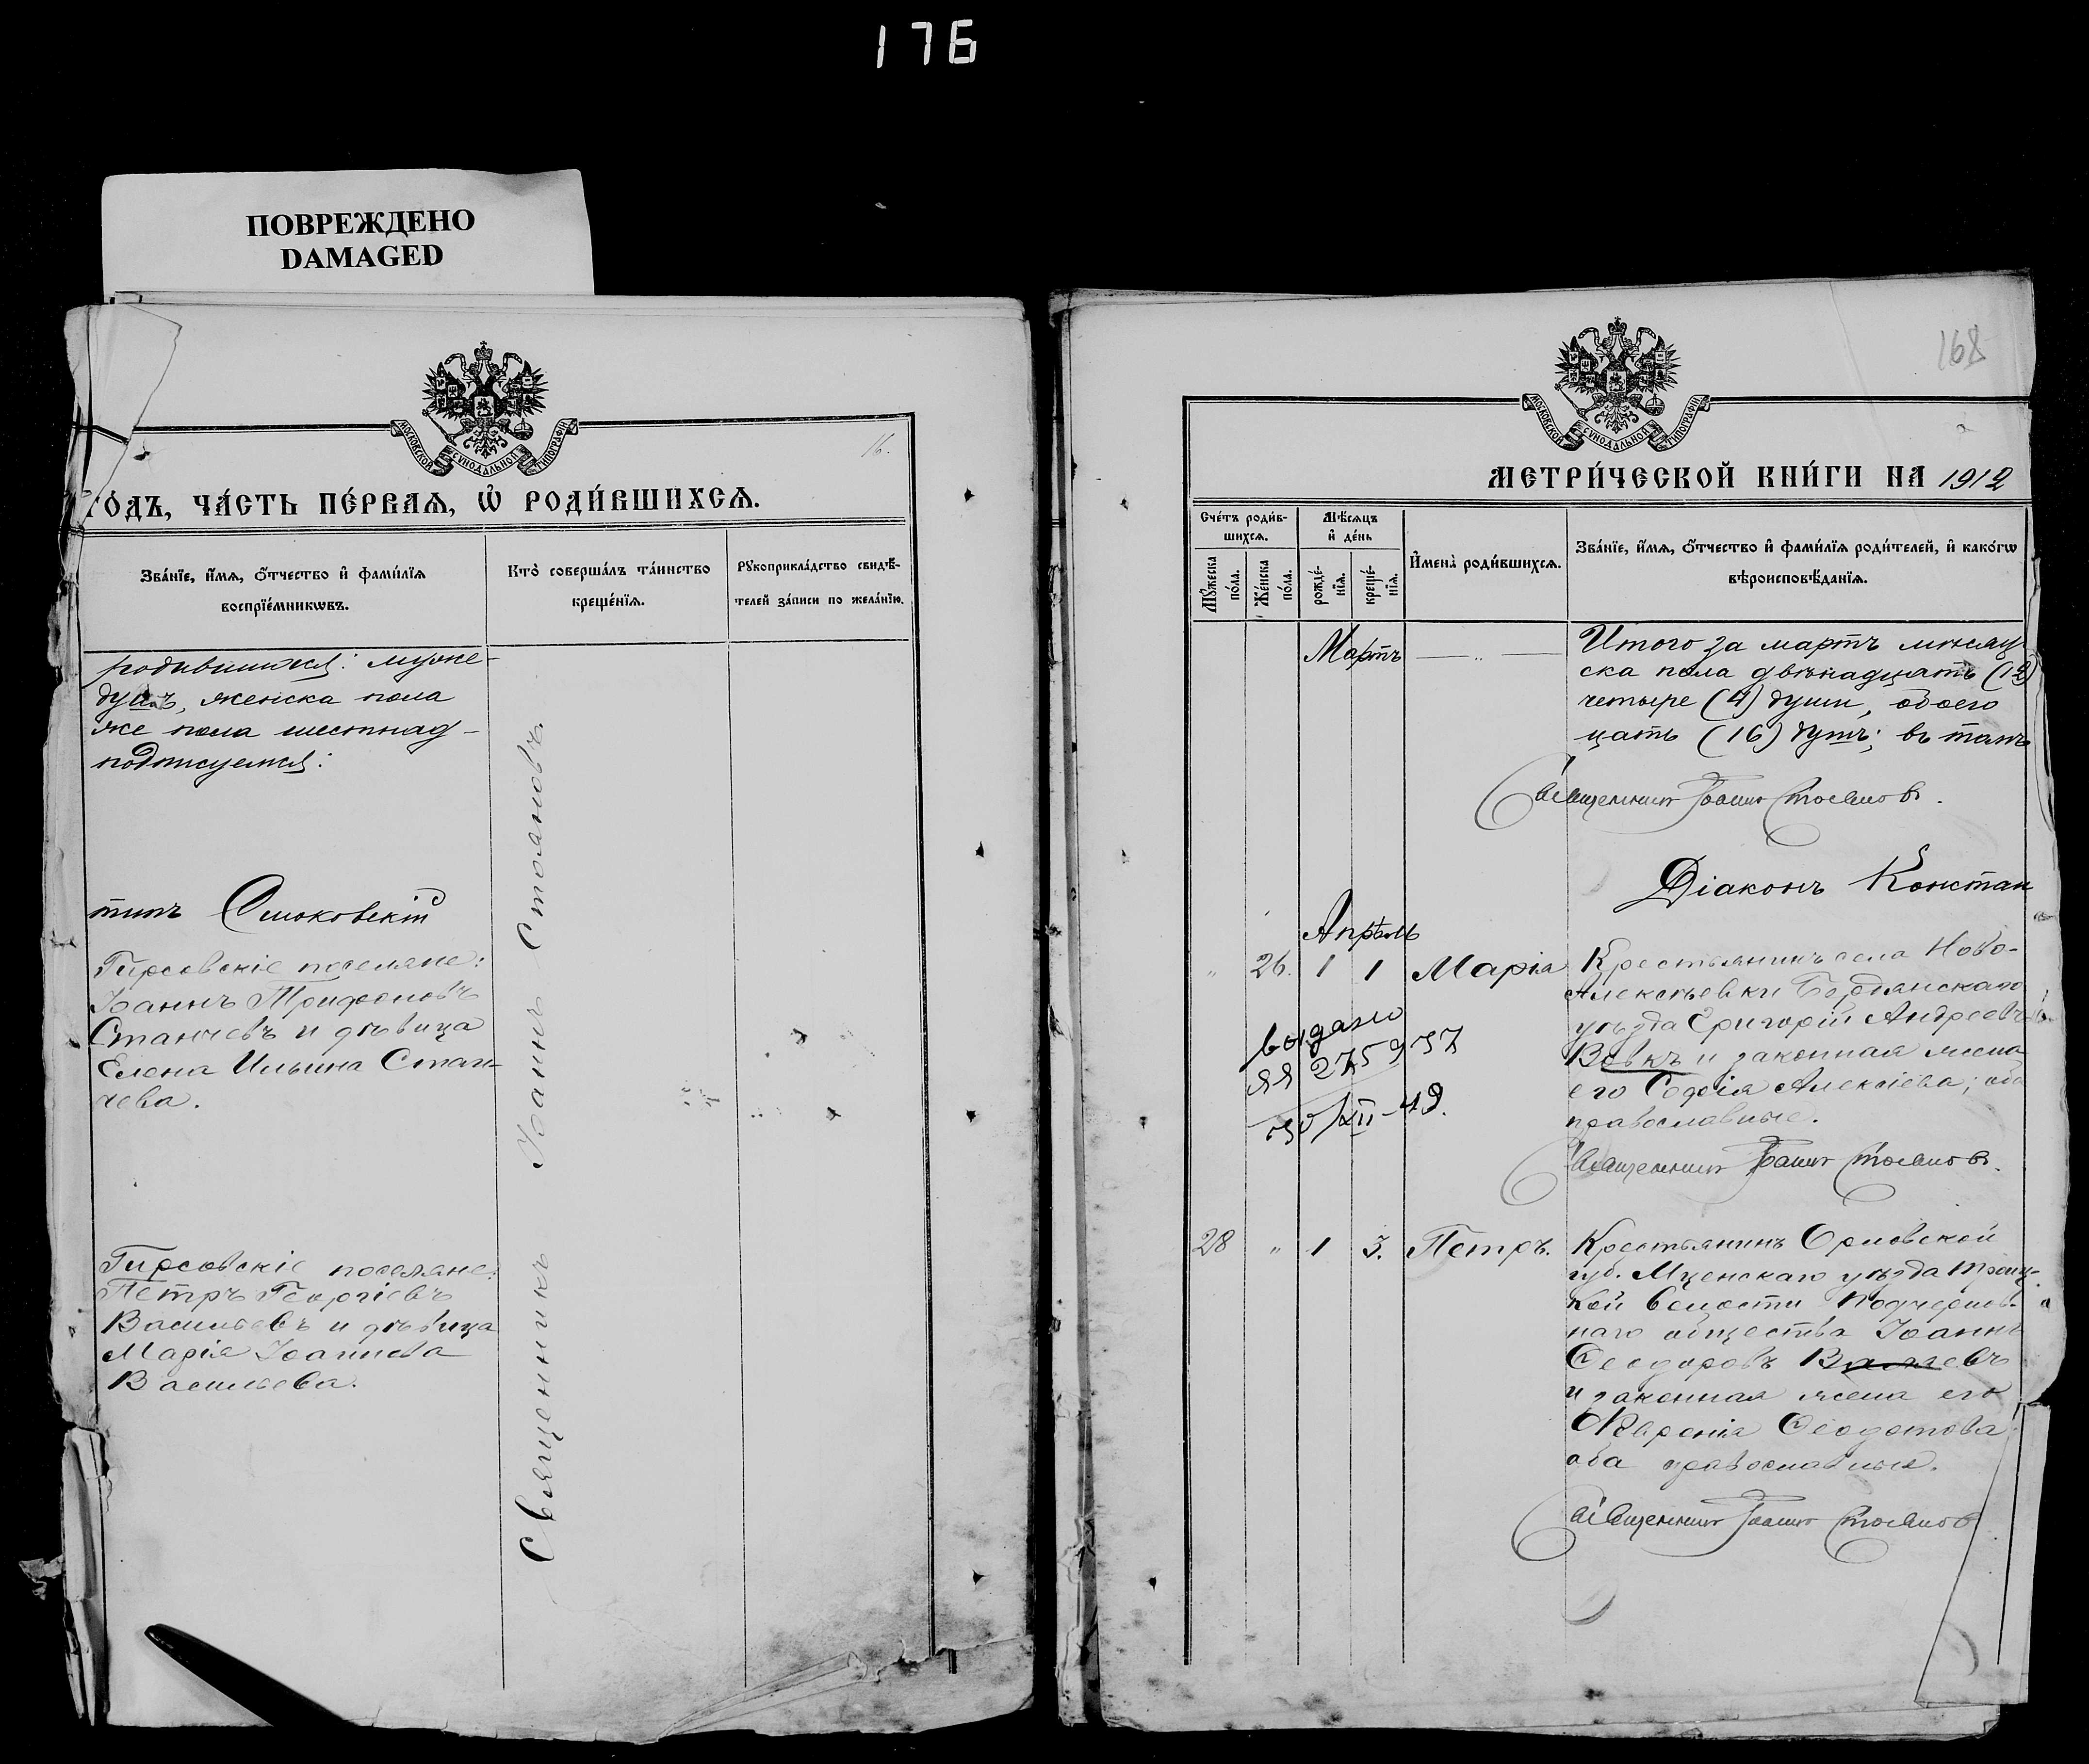 176
ПОВРЕЖДЕНО
DAMAGED
МОСКОВСКОЙ СУНОДАЛЬНОЙ ТИПОГРАФІИ
16.
ГО́ДЪ, ЧА́СТЬ ПЕ́РВАѦ, Ѡ҆ РОДИ́ВШИХСѦ.
Зва́нїе, и҆́мѧ, ѻ҆́тчество и҆ фами́лїѧ
воспрїе́мникѡвъ.
Кто̀ соверша́лъ та́инство
креще́нїѧ.
Рꙋкоприкла́дство свидѣ́-
телей за́писи по жела́нїю.
родившихся: муже-
душъ, женска пола
же пола шестнад-
подписуемся:
тинъ
Гирсовскіе поселяне:
Іоаннъ Трифоновъ
Станчевъ и дѣвица
Елена Ильина Стан-
чева.
Гирсовскіе поселяне:
Петръ Георгіевъ
Васильевъ и дѣвица
Марія Іоаннова
Васильева.
Священникъ Іоаннъ Стояновъ.
168
МОСКОВСКОЙ СУНОДАЛЬНОЙ ТИПОГРАФІИ
МЕТРИ́ЧЕСКОЙ КНИ́ГИ НА 1912
Сче́тъ роди́в-
шихсѧ.
Мꙋ́жеска по́ла.
Же́нска по́ла.
Мѣ́сѧцъ
и҆ де́нь
рожде́-
нїѧ.
креще́-
нїѧ.
И҆мена̀ роди́вшихсѧ.
Зва́нїе, и҆́мѧ, ѻ҆́тчество и҆ фами́лїѧ роди́телей, и҆ како́гѡ
вѣроисповѣ́данїѧ.
Мартъ
Итого за мартъ мѣсяцъ
ска пола двѣнадцать (12)
четыре (4) души, обоего
цать (16) душъ; въ томъ
Священникъ Іоаннъ Стояновъ.
Діаконъ Констан
Апрѣль
" 26. 1 1 Марія
Крестьянинъ села Ново-
Алексѣевки Бердянскаго
уѣзда Григорій Андреевъ
Вовкъ и законная жена
его Софія Алексіева; оба
православные.
выдано
ЯЯ
XII-49.
Священникъ Іоаннъ Стояновъ.
28 " 1 3. Петръ.
Крестьянинъ Орловской
губ. Мценскаго уѣзда Троиц-
кой волости
наго общества Іоаннъ
Ѳеодоровъ
и законная жена его
Ѳеодотова
оба православные.
Священникъ Іоаннъ Стояновъ